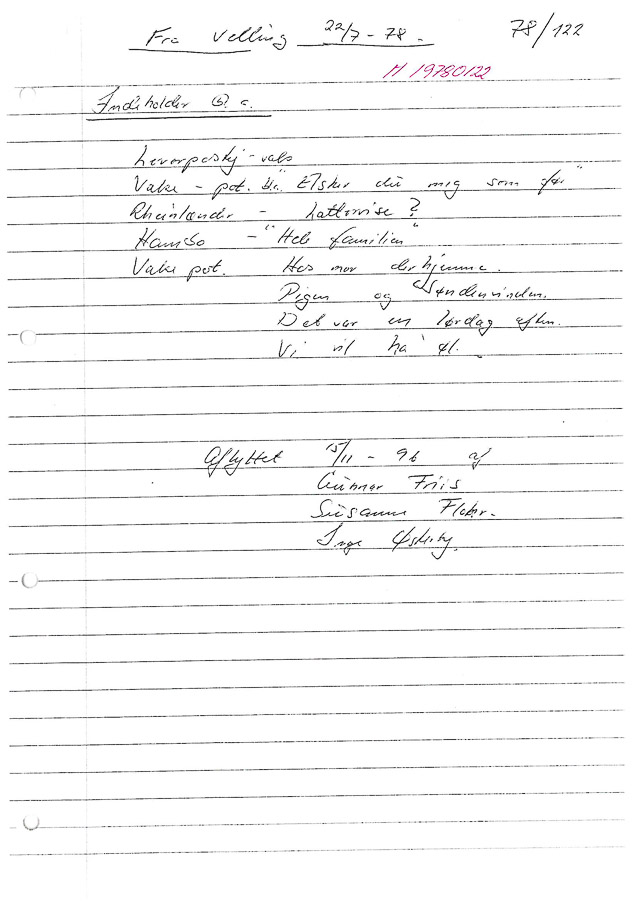 Fra Velling 22/7 - 78. 78/122
M 19780122
Indeholder bl. a.
vals
Valse - pot. bl.a. "Elsker du mig som før"
Rheinlænder - Lattervise?
Hambo - "Hele familien"
Valse pot. Hos mor derhjemme.
Pigen og Søndenvinden.
Det var en lørdag aften.
Vi vil ha' øl.
Aflyttet 15/11 - 96 af
Gunnar Friis
Susanne
Inge